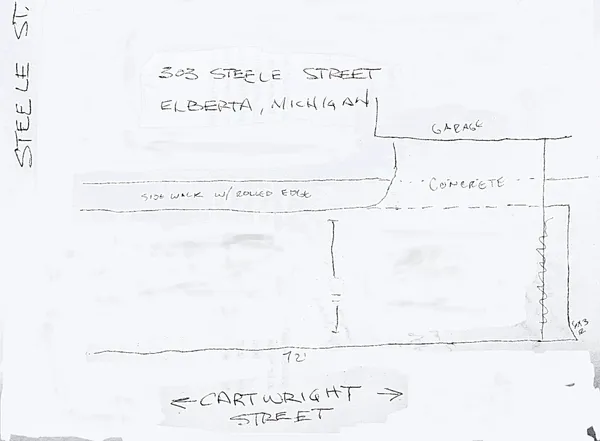 STEELE ST.
303 STEELE STREET
ELBERTA, MICHIGAN
GARAGE
CONCRETE
SIDE WALK W/ ROLLED EDGE
72'
CARTWRIGHT
STREET